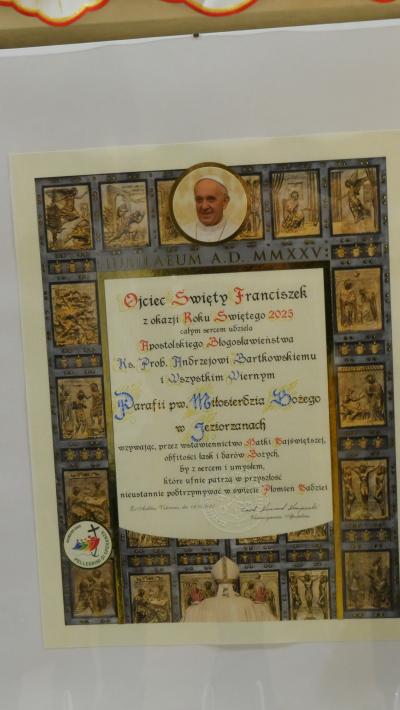 JUBILAEUM A.D. MMXXV
Ojciec Święty Franciszek
z okazji Roku Świętego 2025
całym sercem udziela
Apostolskiego Błogosławieństwa
Ks. Prob. Andrzejowi Bartkowskiemu
i Wszystkim Wiernym
Parafii pw. Miłosierdzia Bożego
w Jeziorzanach
wzywając, przez wstawiennictwo Matki Najświętszej,
obfitości łask i darów Bożych,
by z sercem i umysłem,
które ufnie patrzą w przyszłość
nieustannie podtrzymywać w świecie Płomień Nadziei